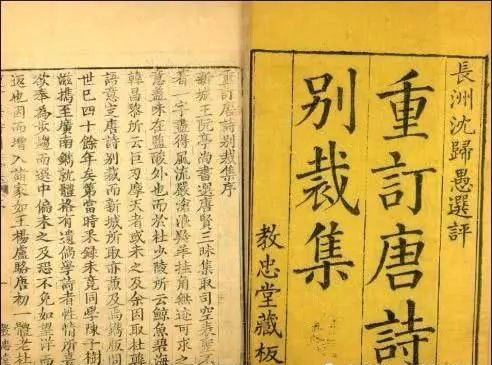 長洲沈歸愚選評
重訂唐詩
別裁集
教忠堂藏板
重訂唐詩別裁集序
新城王阮亭尚書選唐賢三昧集取司空表聖不
著一字盡得風流嚴滄浪羚羊挂角無迹可求之
意蓋味在鹽酸外也而於杜少陵所云鯨魚碧海
韓昌黎所云巨刃摩天者或未之及余因取杜韓
語意定唐詩別裁而新城所取亦兼及焉鏤版問
世已四十餘年矣第當時采錄未竟同學陳子樹
滋攜至廣南鐫就體格有遺倘學詩者性情所喜
欲奉為步趨而選中偏未之及恐不免如望洋而
返也因而增入諸家如王楊盧駱唐初一體老杜